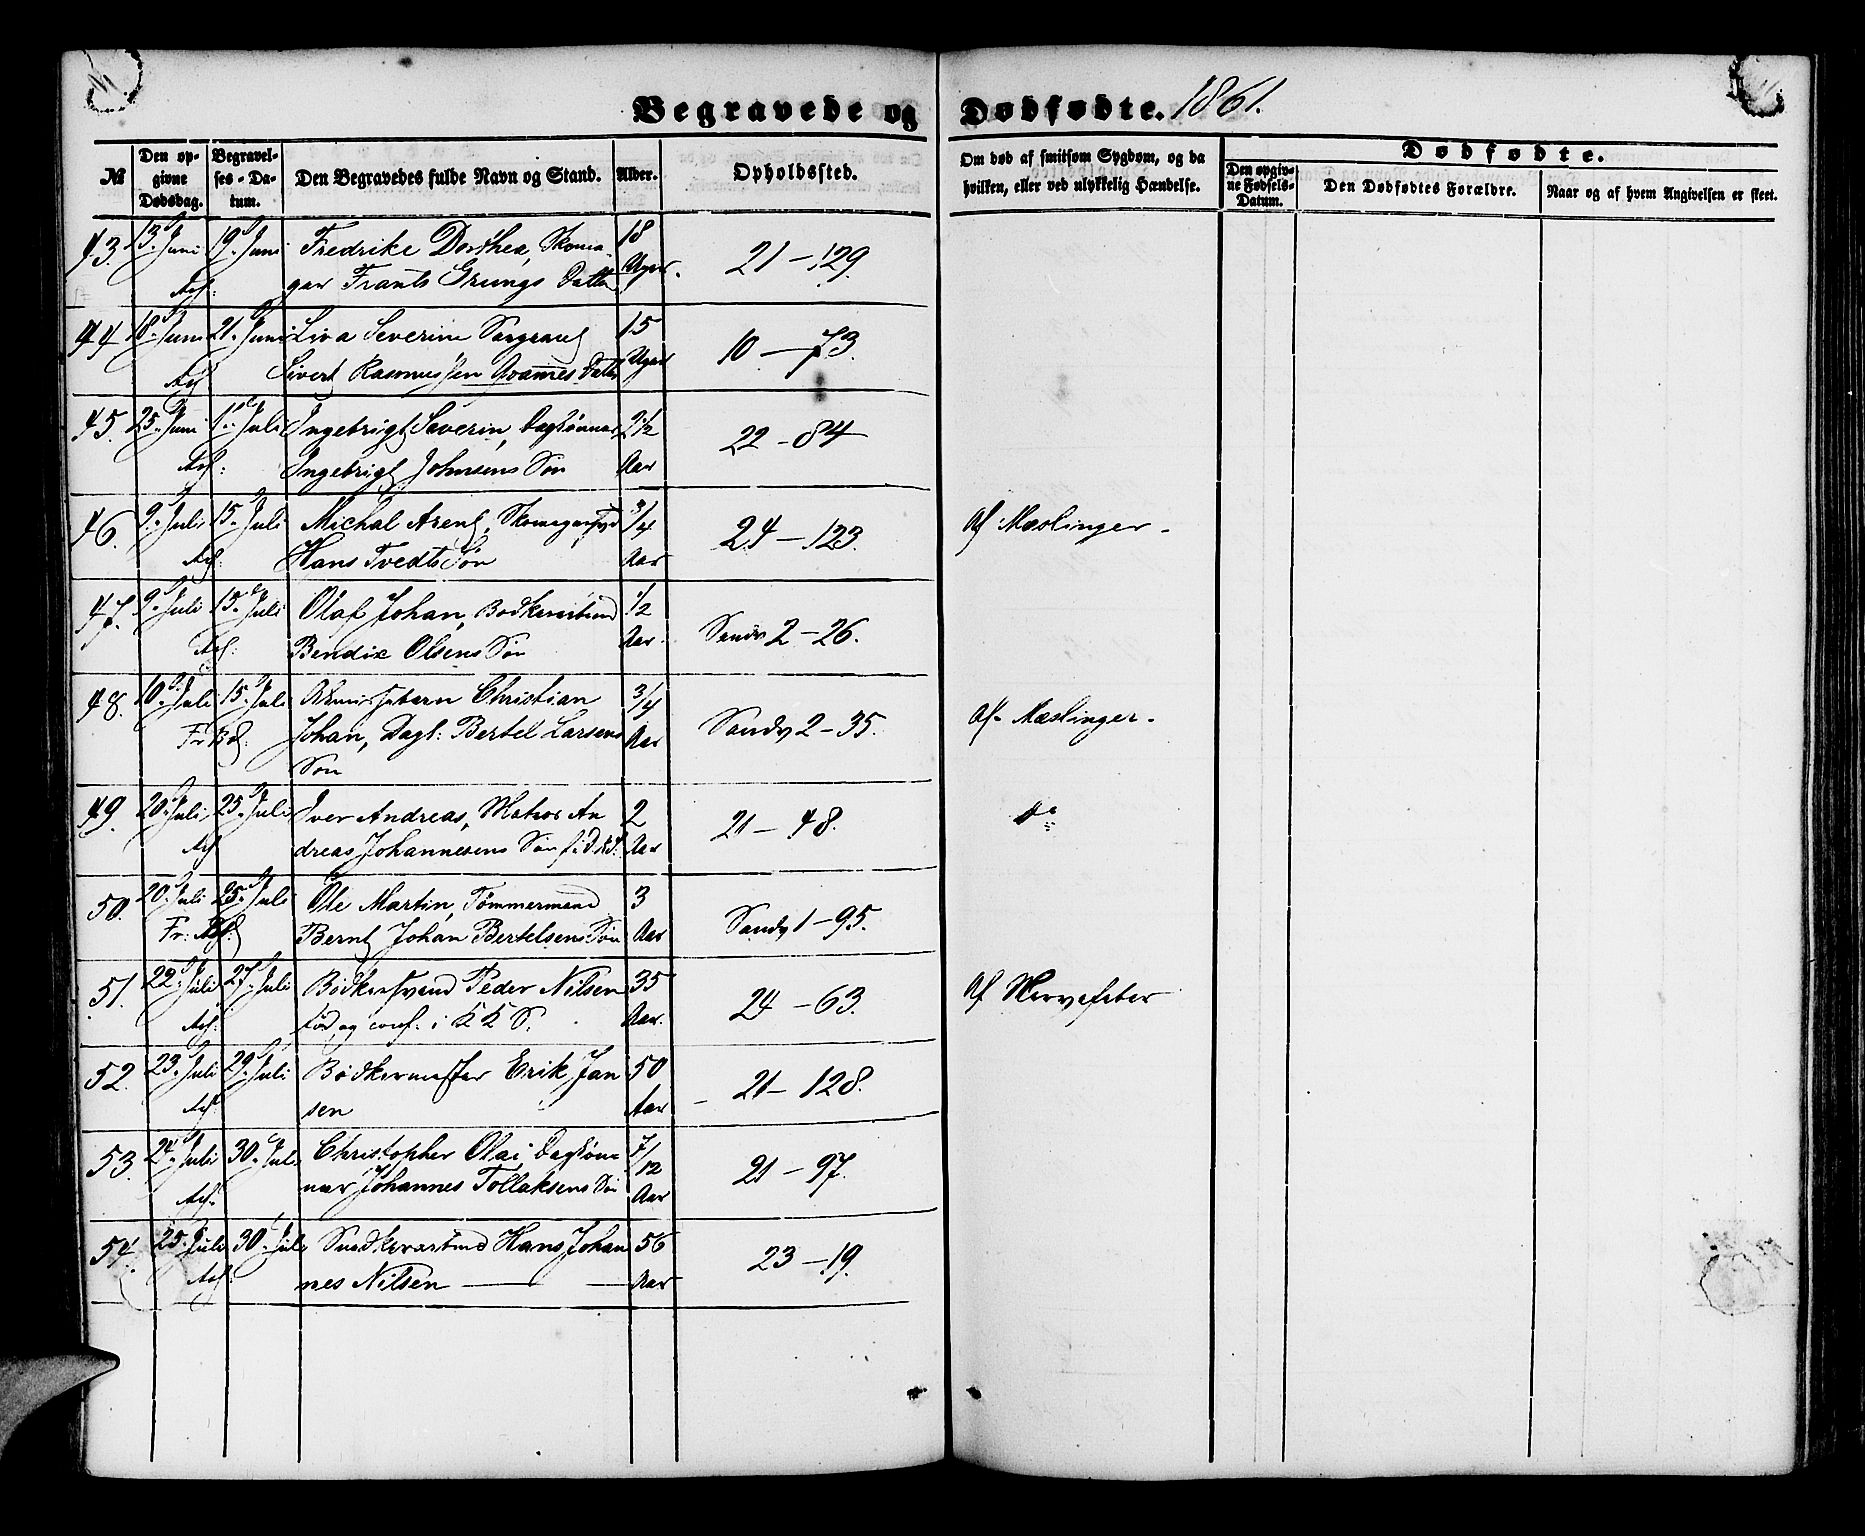 Begravede og Dødfødte. 1861.
№ Den opgivne Dødsdag. Begravelses-Datum. Den Begravedes fulde Navn og Stand. Alder. Opholdssted. Om død af smitsom Sygdom, og da hvilken, eller ved ulykkelig Hændelse. Dødfødte.
Den opgivne Fødsels-Datum. Den Dødfødtes Forældre. Naar og af hvem Angivelsen er skeet.
43. 13d Juni 19d Juni Fredrike Dorthea, Skoma- 18
gar Frants Grungs Datter Uger. 21 – 129.
44 18d Juni 21d Juni Liva Severine 15
Sivert Rasmussen Datter Uger 10 – 73.
45. 25d Juni 1ste Juli Ingebrigt Severin, Daglønnar 2 1/2
Ingebrigt Johnsens Søn Aar 22 – 84
46. 9d Juli 15d Juli Michal Arent, Skomagersvd 3/4
Hans Tvedts Søn Aar 24 – 123. Af Mæslinger –
47. 9d Juli 13de Juli Olaf Johan, Bødkersvend 1/2
Bendix Olsens Søn Aar. Sandv 2 – 26.
48. 10d Juli 15d Juli Christian 3/4
Johan, Dagl: Bertel Larsens Aar Sandv 2 – 35. Af Mæslinger –
Søn
49. 20d Juli 25d Juli Iver Andreas, Matros An 2
dreas Johannesens Søn Aar 21 – 48. do
50. 20d Juli 25d Juli Ole Martin, Tømmermand 3
Bernt Johan Bertelsens Søn Aar Sandv 1 – 95.
51. 22d Juli 27d Juli Bødkersvend Peder Nilsen 35
fød og conf. i K K S. Aar. 24 – 63. Af Nervefeber
52. 23d Juli 29d Juli Bødkermester Erik Jan 50
sen Aar 21 – 128.
53. 24d Juli 30d Juli Christopher Olai Dagløn- 7/12
nar Johannes Tollaksens Søn Aar 21 – 97.
54. 25d Juli 30d Juli Hans Johan 56
nes Nilsen Aar 23 – 19.